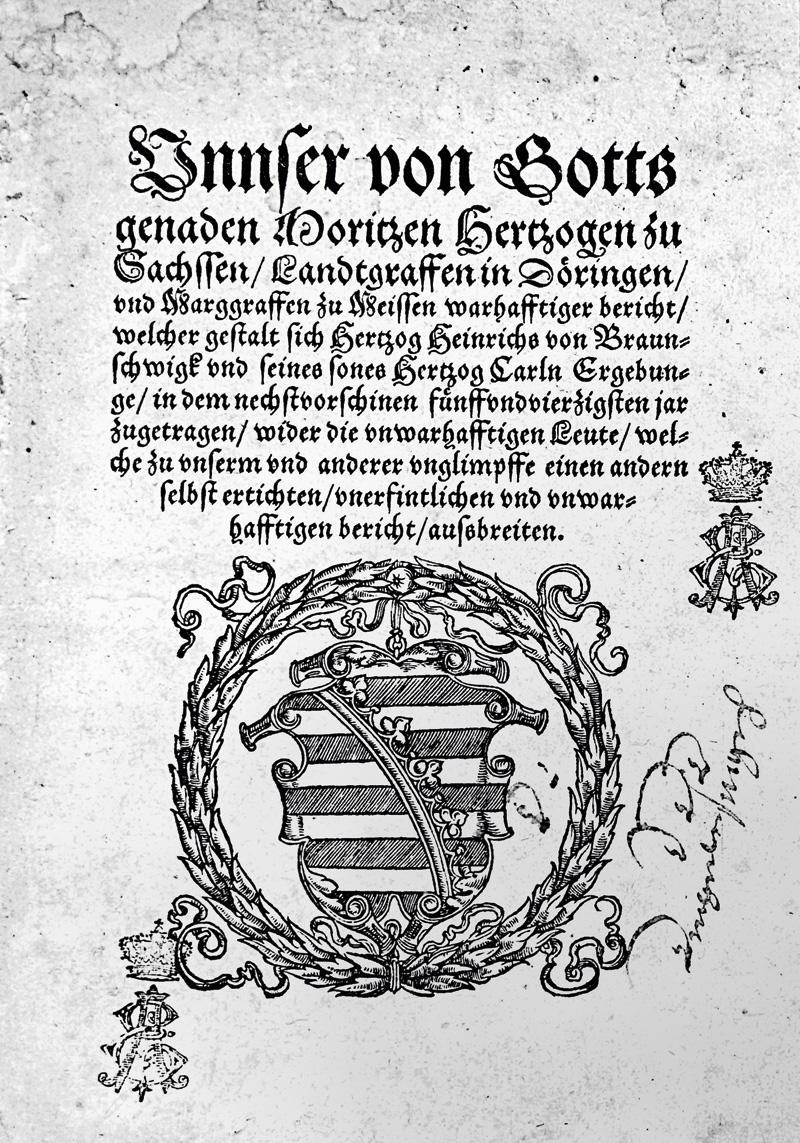 Vnnſer von Gotts
genaden Moritzen Hertzogen zu
Sachſſen/ Landtgraffen in Döringen/
vnd Marggraffen zu Meiſſen warhafftiger bericht/
welcher geſtalt ſich Hertzog Heinrichs von Braun⸗
ſchwigk vnd ſeines ſones Hertzog Carln Ergebun⸗
ge/ in dem nechſtvorſchinen fünffvndvierzigſten jar
zugetragen/ wider die vnwarhafftigen Leute/ wel⸗
che zu vnſerm vnd anderer vnglimpffe einen andern
ſelbſt ertichten/ vnerfintlichen vnd vnwar⸗
hafftigen bericht/ auſsbreiten.